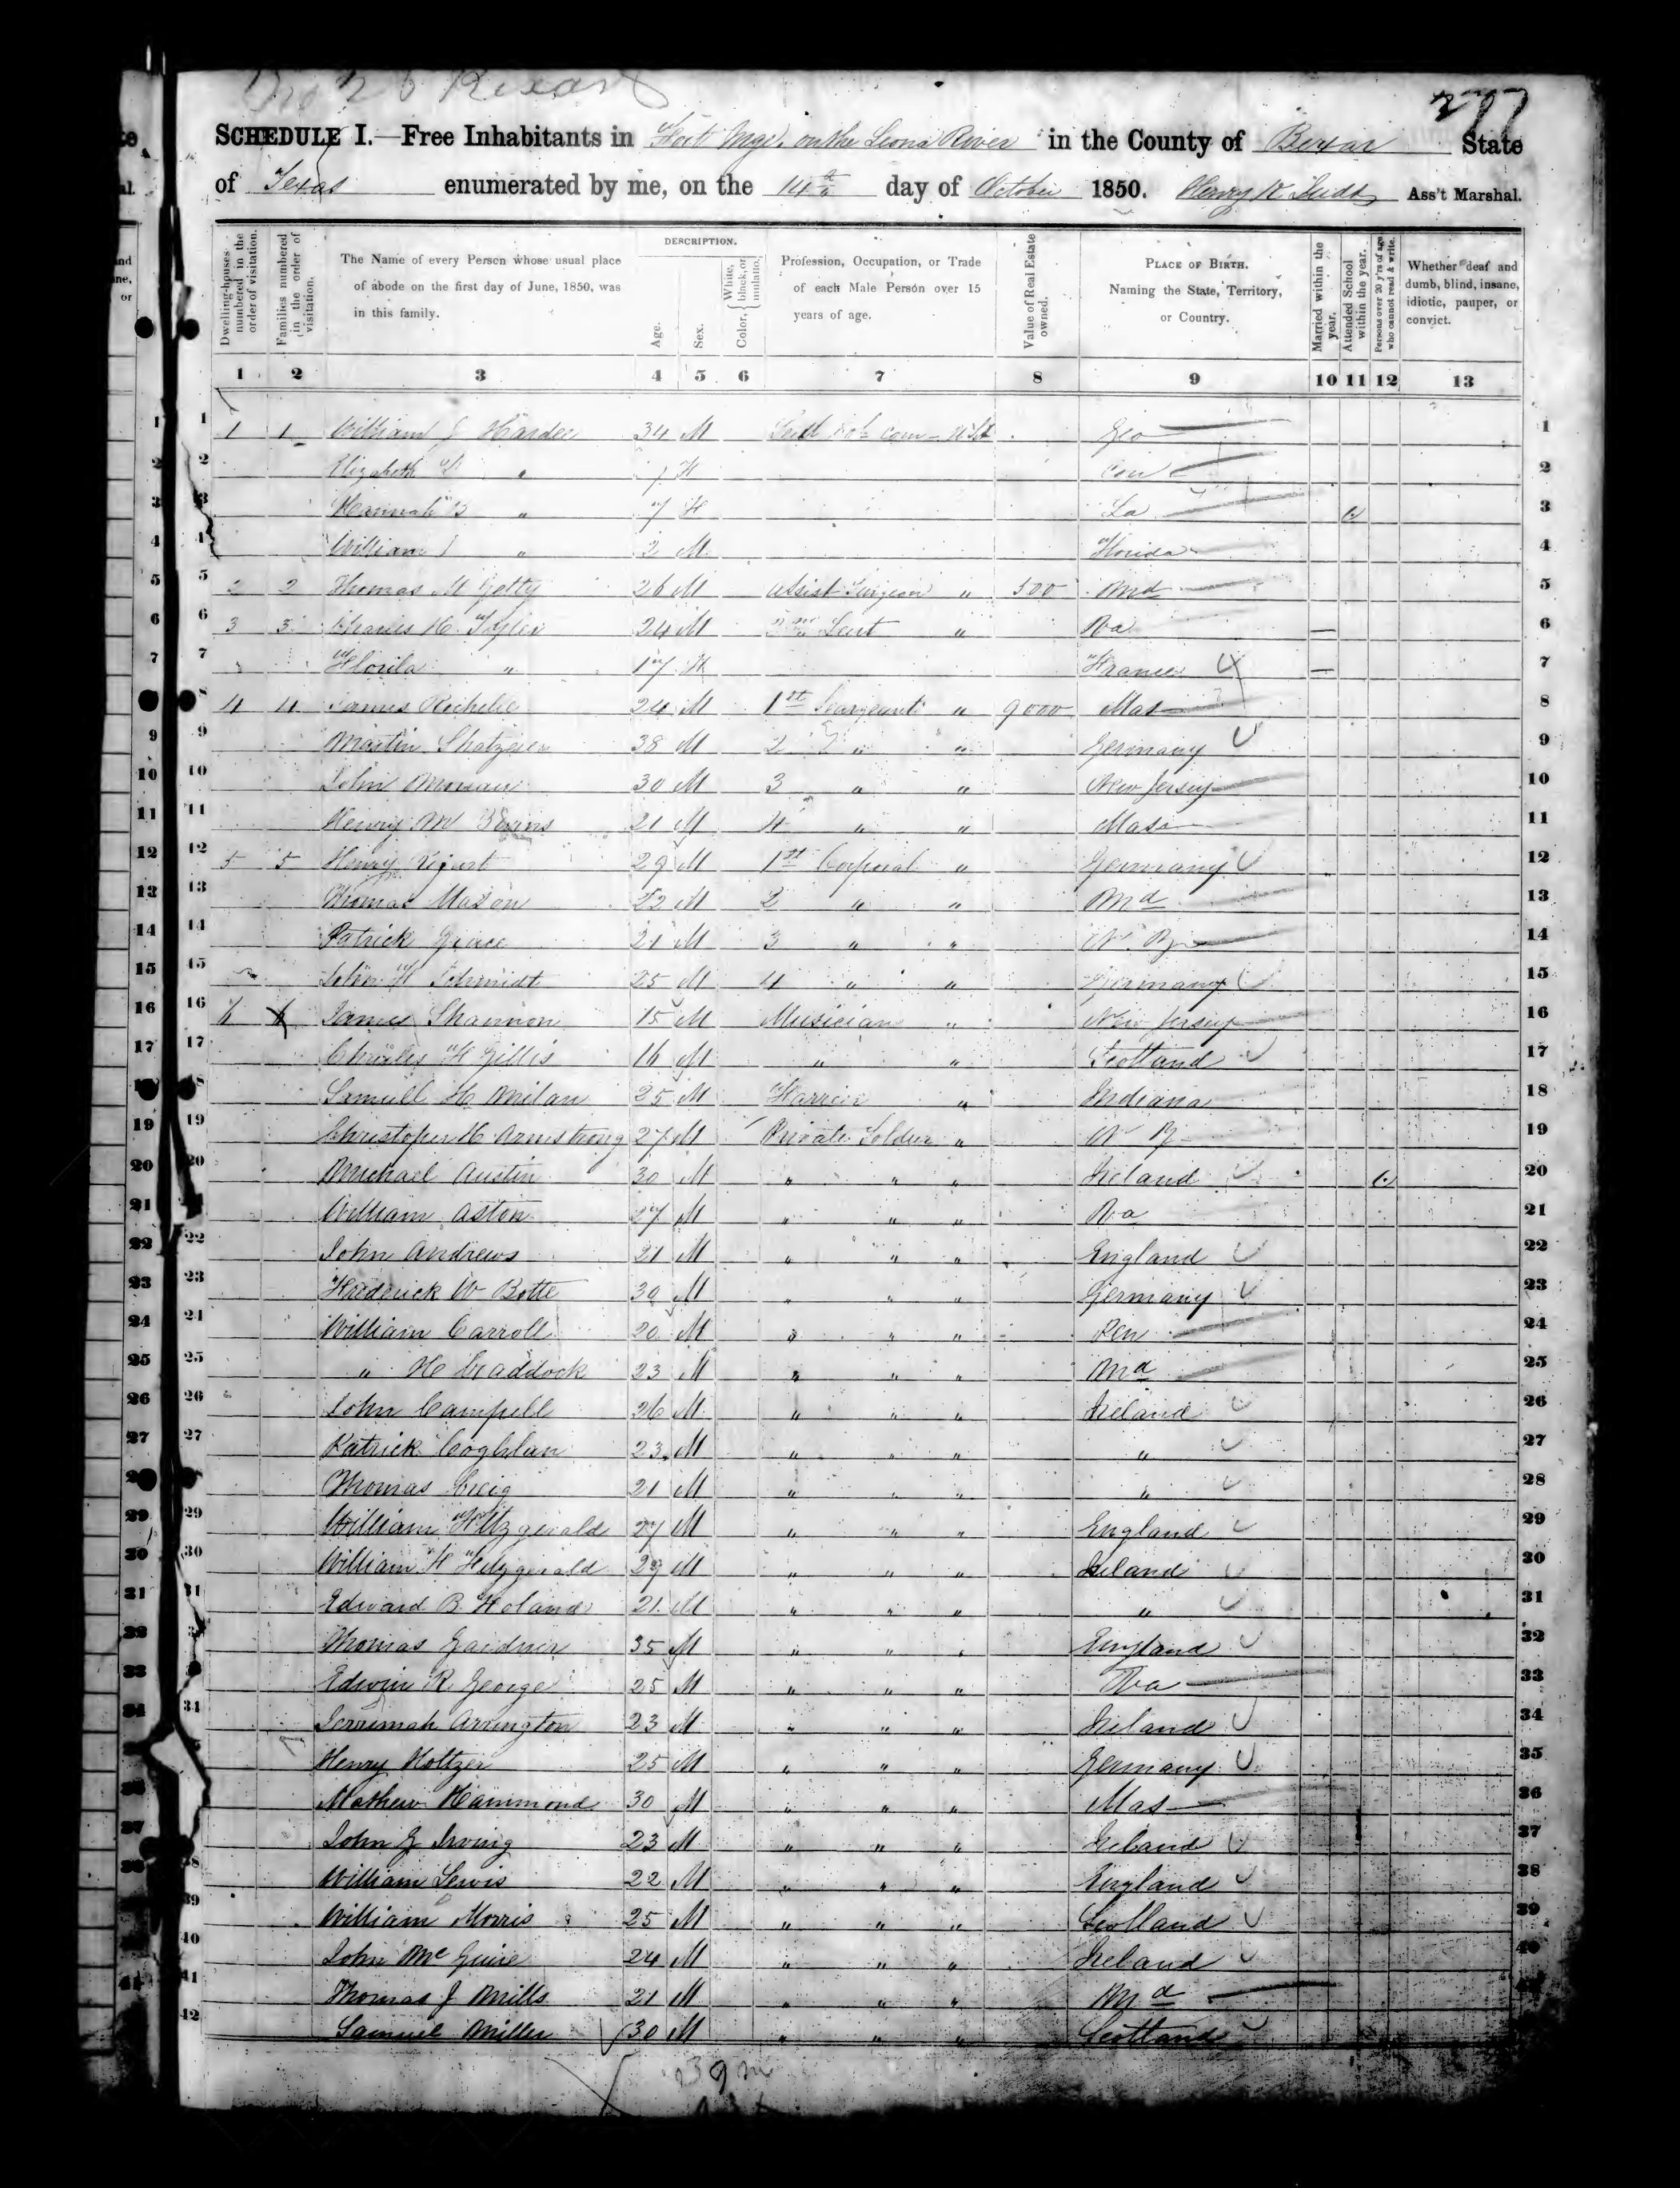 277
SCHEDULE I.—Free Inhabitants in Fort Inge, on the Leona River in the County of Bexar State
of Texas enumerated by me, on the 14th day of October 1850. Henry K Judd Ass't Marshal.
Dwelling-houses numbered in the order of visitation.
Families numbered in the order of visitation.
The Name of every Person whose usual place of abode on the first day of June, 1850, was in this family.
DESCRIPTION.
Age.
Sex.
Color, { White, black, or mulatto.
Profession, Occupation, or Trade of each Male Person over 15 years of age.
Value of Real Estate owned.
PLACE OF BIRTH. Naming the State, Territory, or Country.
Married within the year.
Attended School within the year.
Persons over 20 y'rs of age who cannot read & write.
Whether deaf and dumb, blind, insane, idiotic, pauper, or convict.
1 2 3 4 5 6 7 8 9 10 11 12 13
1 1 1 William J Hardee 34 M Geo 1
2 Elizabeth " F Con 2
3 Hannah B " 7 F La 3
4 William " 2 M Florida 4
5 2 2 Thomas M Getty 26 M Assist Surgeon " 500 Md 5
6 3 3 Charles H. Tyler 24 M 2nd Leut " Va — 6
7 " 17 F France — 7
8 4 4 James Richelie 24 M 1st Seargeant " 9000 Mas 8
9 Martin Shatzeier 38 M 2 " " Germany 9
10 John 30 M 3 " " New Jersey 10
11 Henry M Bevins 21 M 4 " " Mass 11
12 5 5 Henry 29 M 1st Corporal " Germany 12
13 Thomas Mason 22 M 2 " " Md 13
14 Patrick Grace 21 M 3 " " N. Y 14
15 John F Schmidt 25 M 4 " " Germany 15
16 6 6 James Shannon 15 M Musician " New Jersey 16
17 Charles F Gillis 16 M " " Scotland 17
18 Samuell H Milan 25 M Farrier " Indiana 18
19 Christopher H Armstrong 27 M Private Soldier " N Y 19
20 Michael Austin 30 M " " " Ireland 20
21 William Aston 27 M " " " Va 21
22 John Andrews 21 M " " " England 22
23 Frederick W Botte 30 M " " " Germany 23
24 William Carroll 20 M " " " Pen 24
25 " H Craddock 23 M " " " Md 25
26 John Campell 26 M " " " Ireland 26
27 Patrick Coghlan 23 M " " " " 27
28 Thomas Creig 21 M " " " " 28
29 William Fitzgerald 27 M " " " England 29
30 William F Fitzgerald 29 M " " " Ireland 30
31 Edward B Foland 21 M " " " " 31
32 Thomas Gardner 35 M " " " England 32
33 Edwin R George 25 M " " " Va 33
34 Jerrimah Arrington 23 M " " " Ireland 34
35 Henry Holtzer 25 M " " " Germany 35
36 Mathew Hammond 30 M " " " Mas 36
37 John G Irving 23 M " " " Ireland 37
38 William Lewis 22 M " " " England 38
39 William Morris 25 M " " " Scotland 39
40 John Mc Guire 24 M " " " Ireland 40
41 Thomas J Mills 21 M " " " Md 41
42 Samuel Miller 30 M " " " Scotland
39 m